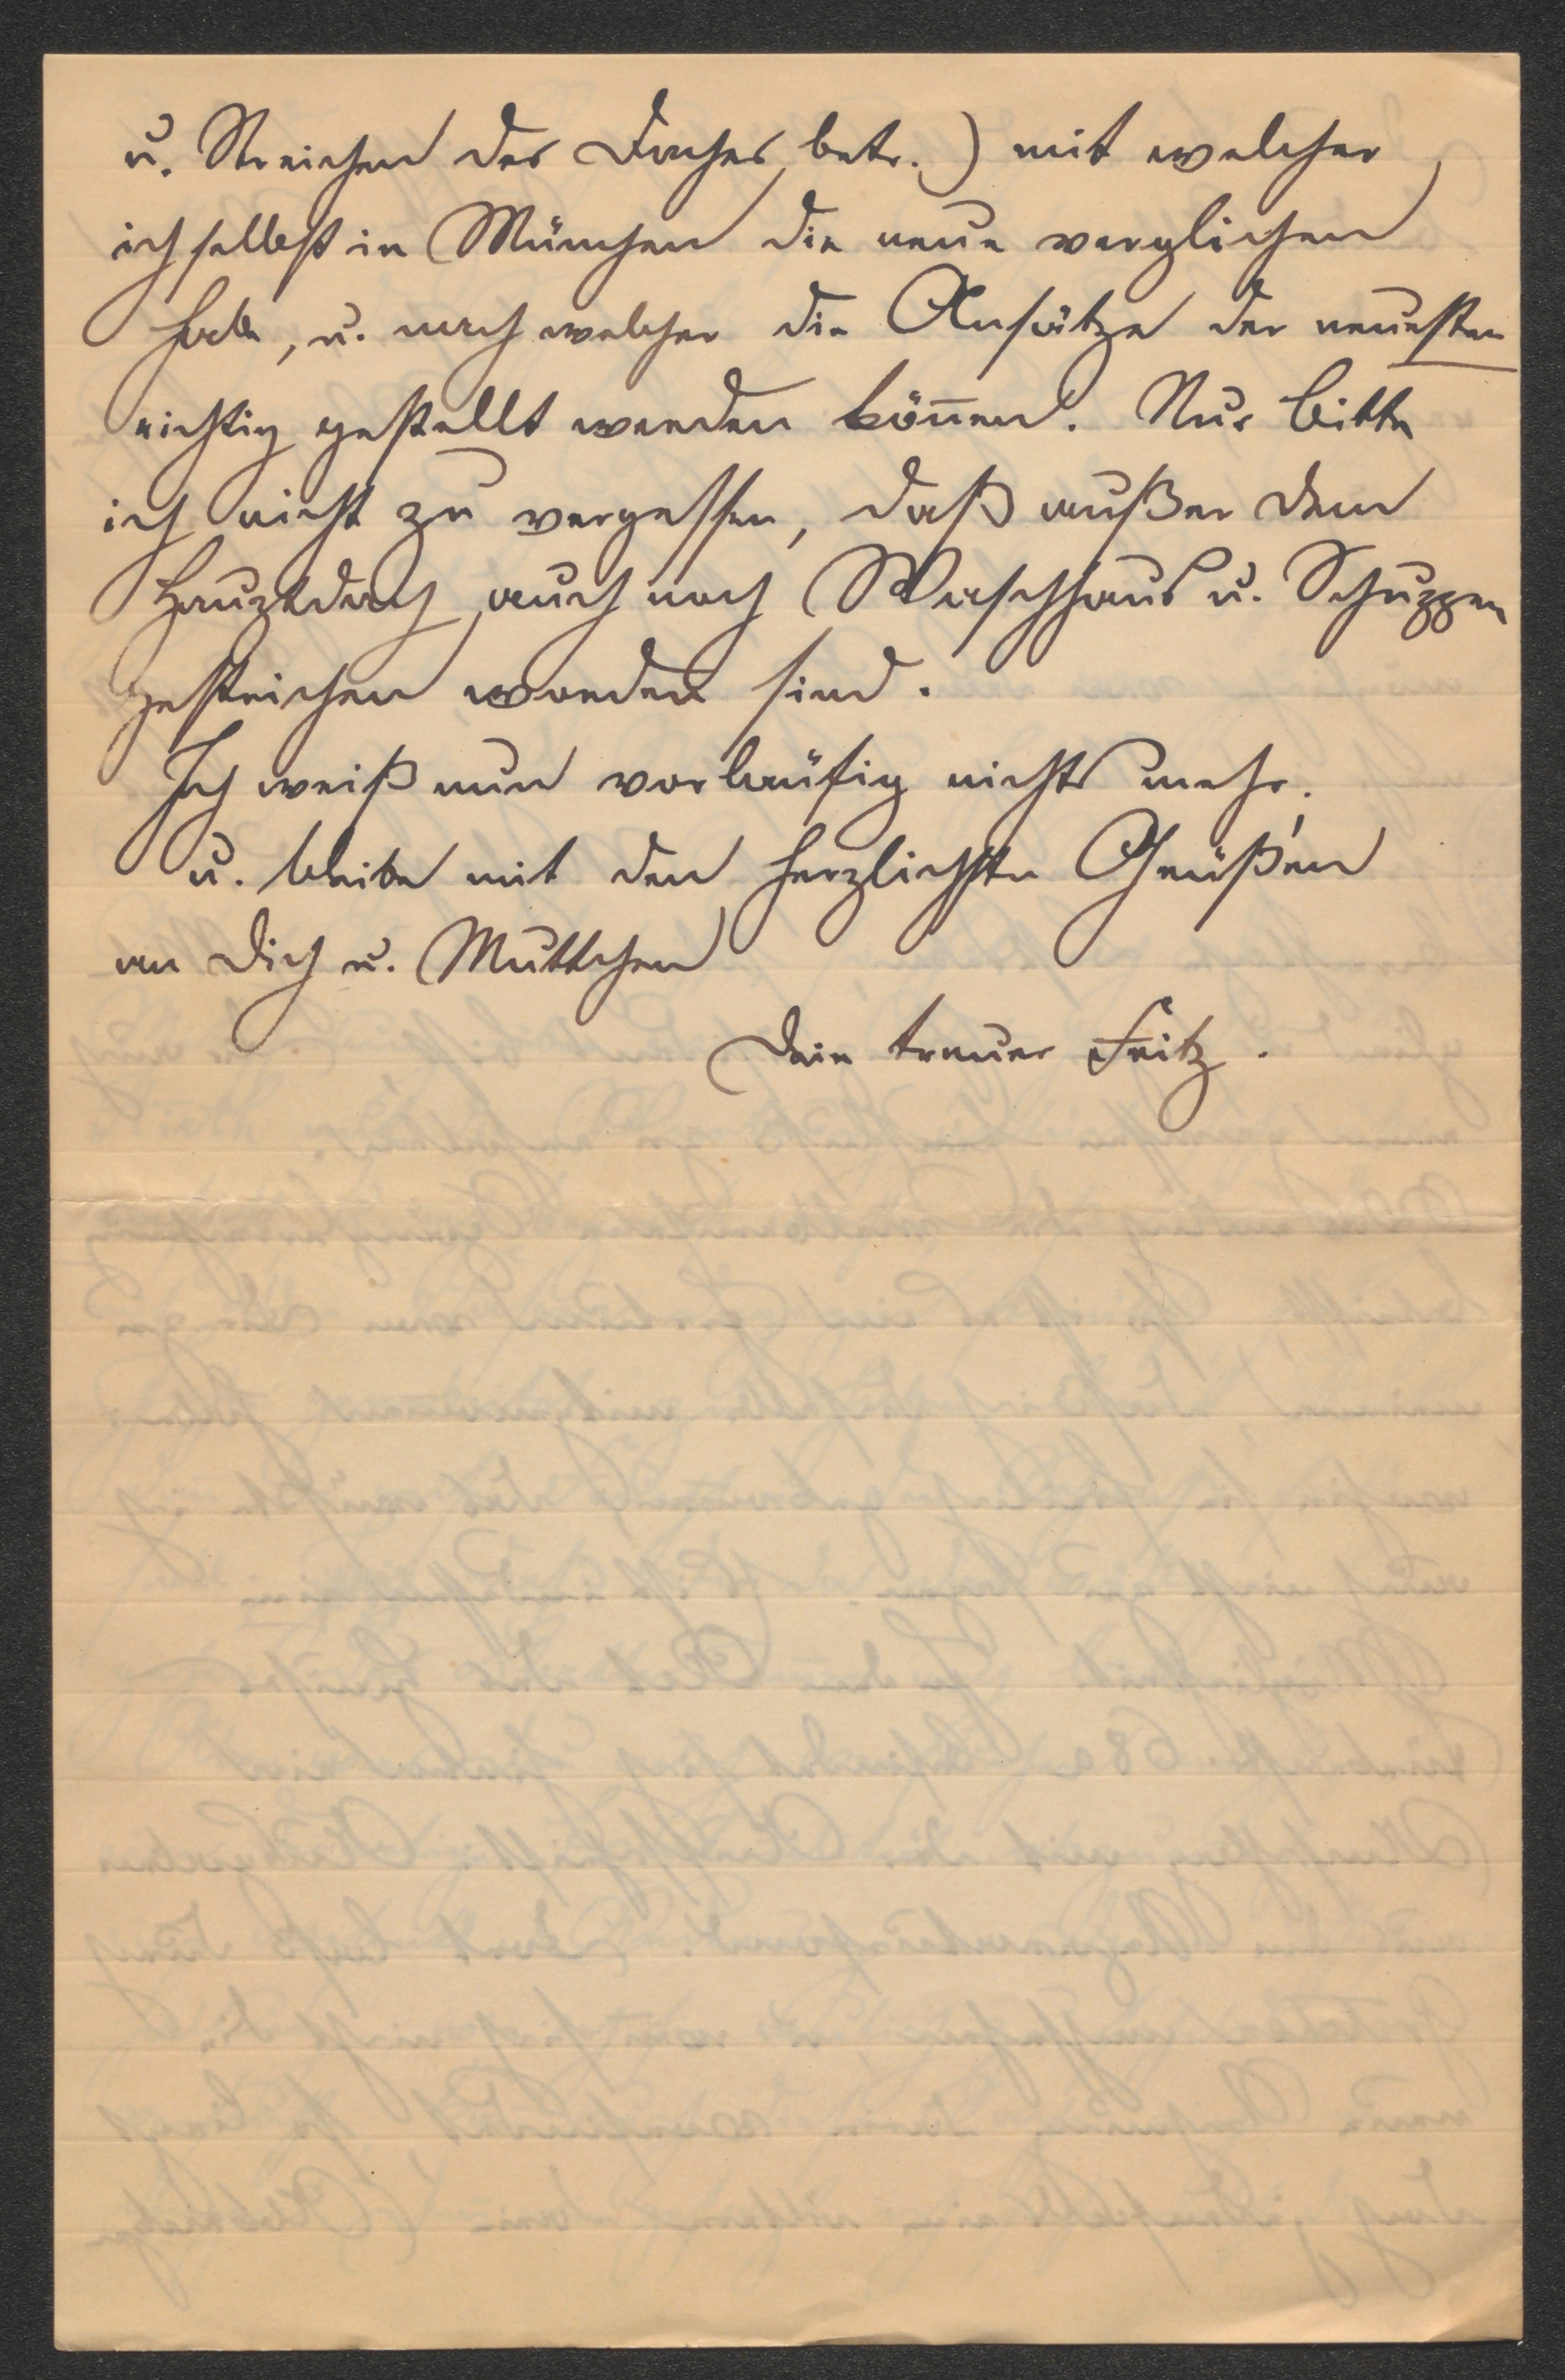 u. Streichen des Daches betr.) mit welcher
ich selbst in München die neue verglichen
habe, u. nach welcher die Ansätze der neuesten
richtig gestellt werden können. Nur bitte
ich nicht zu vergessen, daß außer dem
Hauptdach auch noch Waschhaus u. Schuppen
gestrichen worden sind.
Ich weiß nun vorläufig nichts mehr,
u. bleibe mit den herzlichsten Grüßen
an Dich u. Muttchen
Dein treuer Fritz.